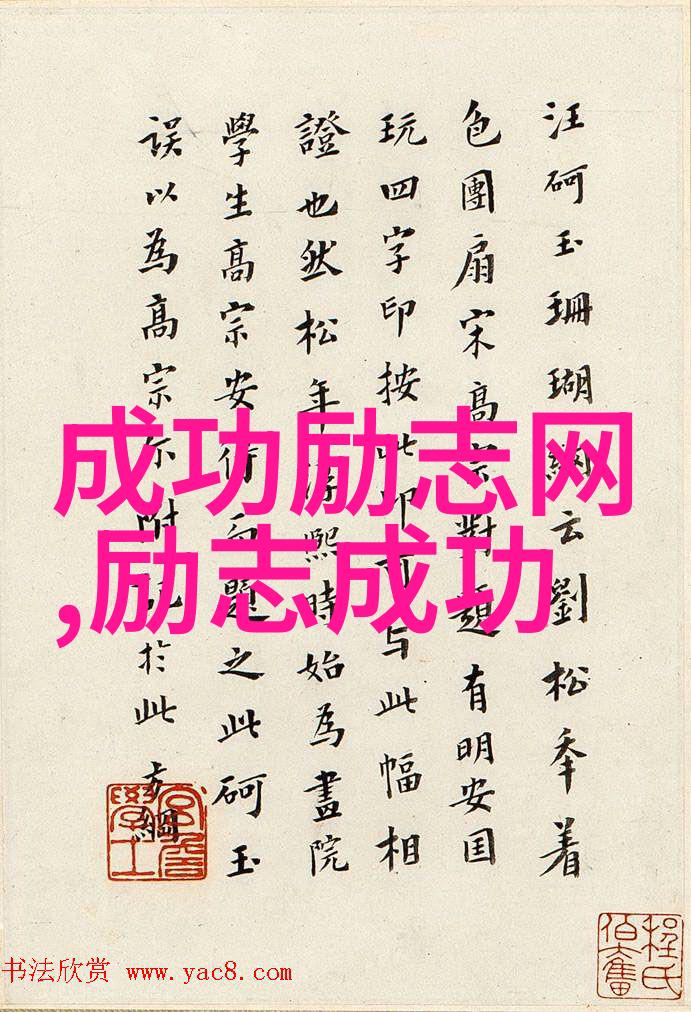 汪砢玉珊瑚網云劉松年着
色團扇宋高宗對題有明安国
玩四字印按此印可与此幅相
證也然松年淳熙時始為畫院
學生高宗安得而題之此砢玉
誤以為高宗尔附記於此方綱
成功励志网
,励志成功
程氏
伯奮
书法欣赏 www.yac8.com